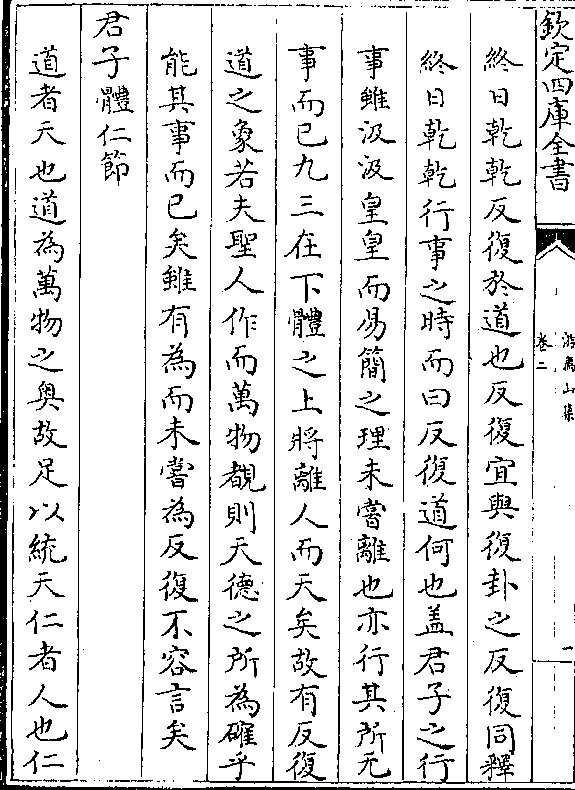 欽定四庫全書
游廌山集
卷二
一
終日乾乾反復於道也反復宜與復卦之反復同釋
終日乾乾行事之時而曰反復道何也盖君子之行
事雖汲汲皇皇而易簡之理未嘗離也亦行其所无
事而已九三在下體之上將離人而天矣故有反復
道之象若夫聖人作而萬物覩則天德之所為確乎
能其事而已矣雖有為而未嘗為反復不容言矣
君子體仁節
道者天也道為萬物之奥故足以統天仁者人也仁